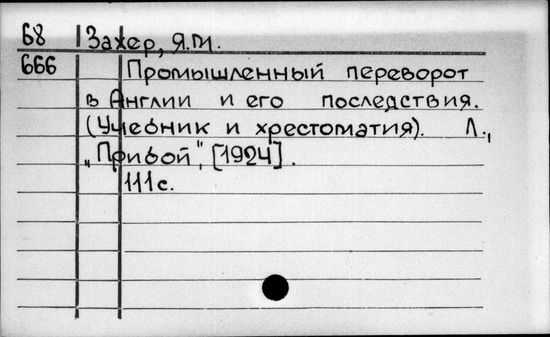 68 Захер, Я.М.
666 Промышленный переворот
в Англии и его последствия.
(Учебник и хрестоматия). Л.,
„Прибой", [1924].
111 с.